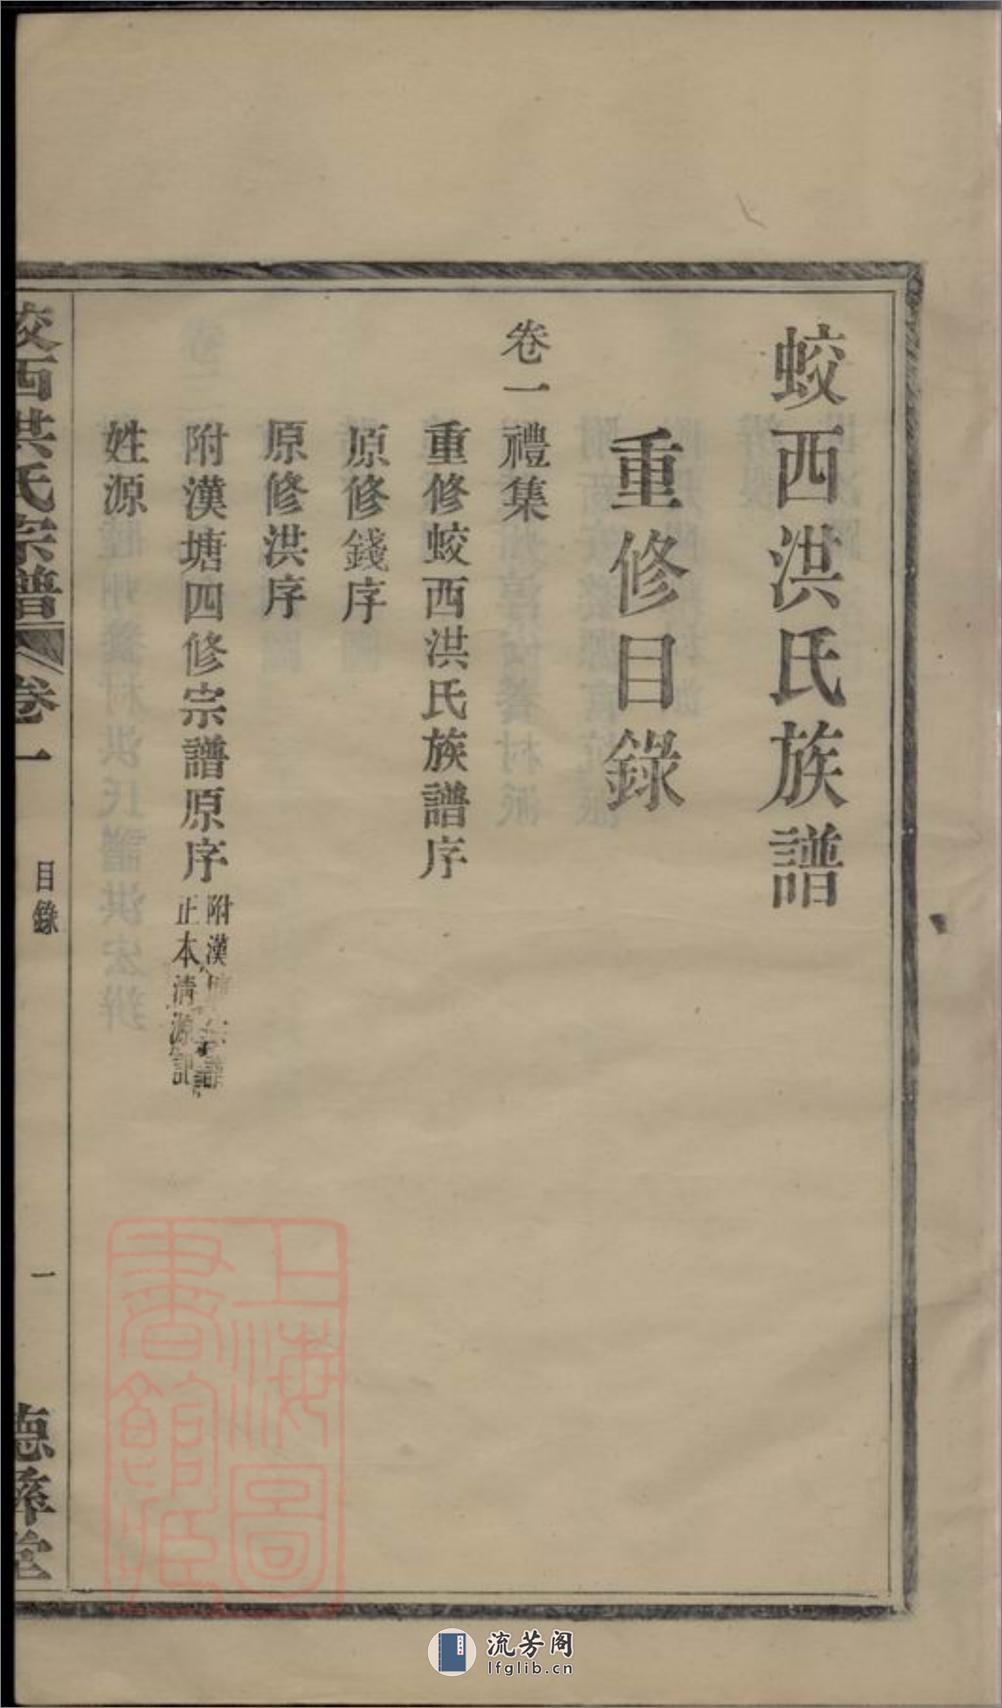 蛟西洪氏族譜
重修目錄
卷一 禮集
重修蛟西洪氏族譜序
原修錢序
原修洪序
附漢塘四修宗譜原序
附漢
正本清源記
姓源
蛟西洪氏宗譜 卷一 目錄 一 德彝堂
上海圖書館藏
流芳阁
lfglib.cn